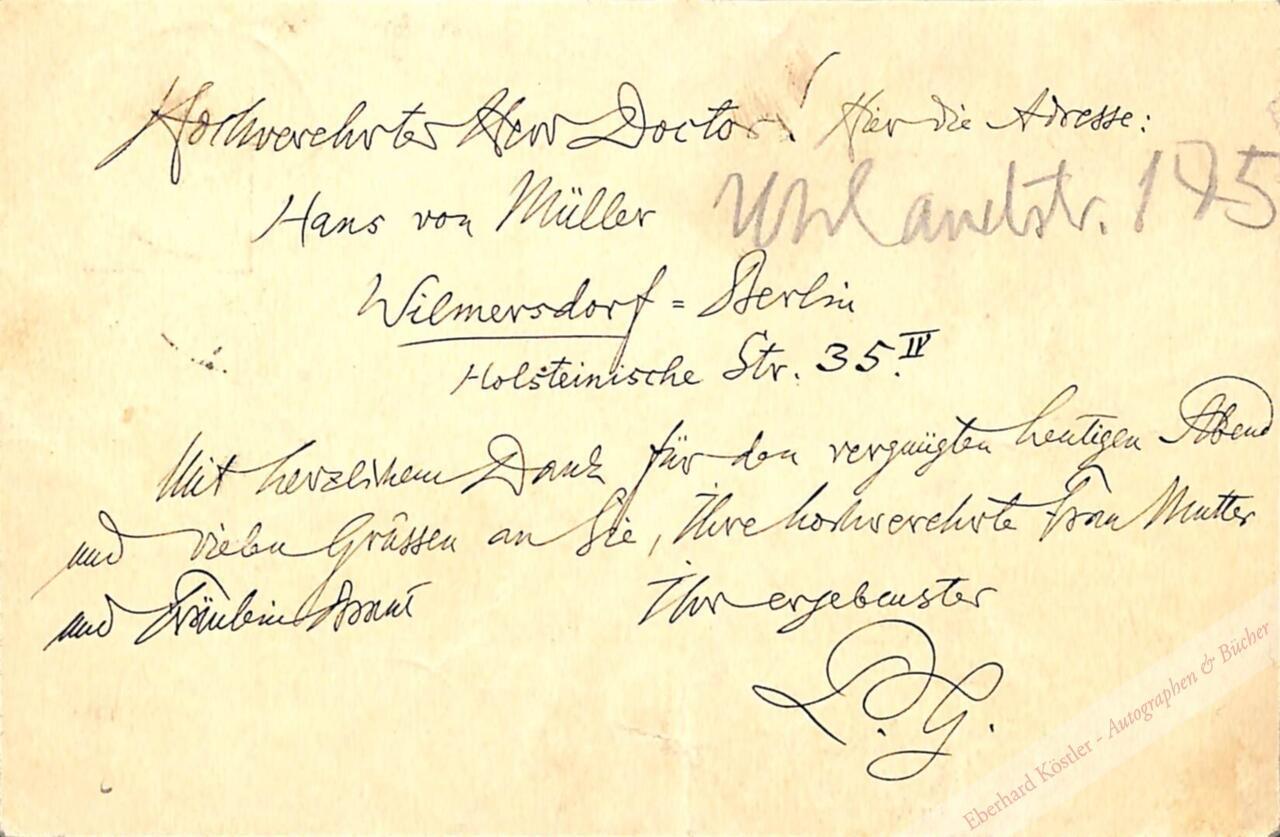 Hochverehrter Herr Doctor! Hier die Adresse:
Hans von Müller
Uhlandstr. 175
Wilmersdorf = Berlin
Holsteinische Str. 35.IV
Mit herzlichem Dank für den vergnügten heutigen Abend
und vielen Grüssen an Sie, Ihre hochverehrte Frau Mutter
und Fräulein Braut
Ihr ergebenster
L. G.
Eberhard Köstler - Autographen & Bücher